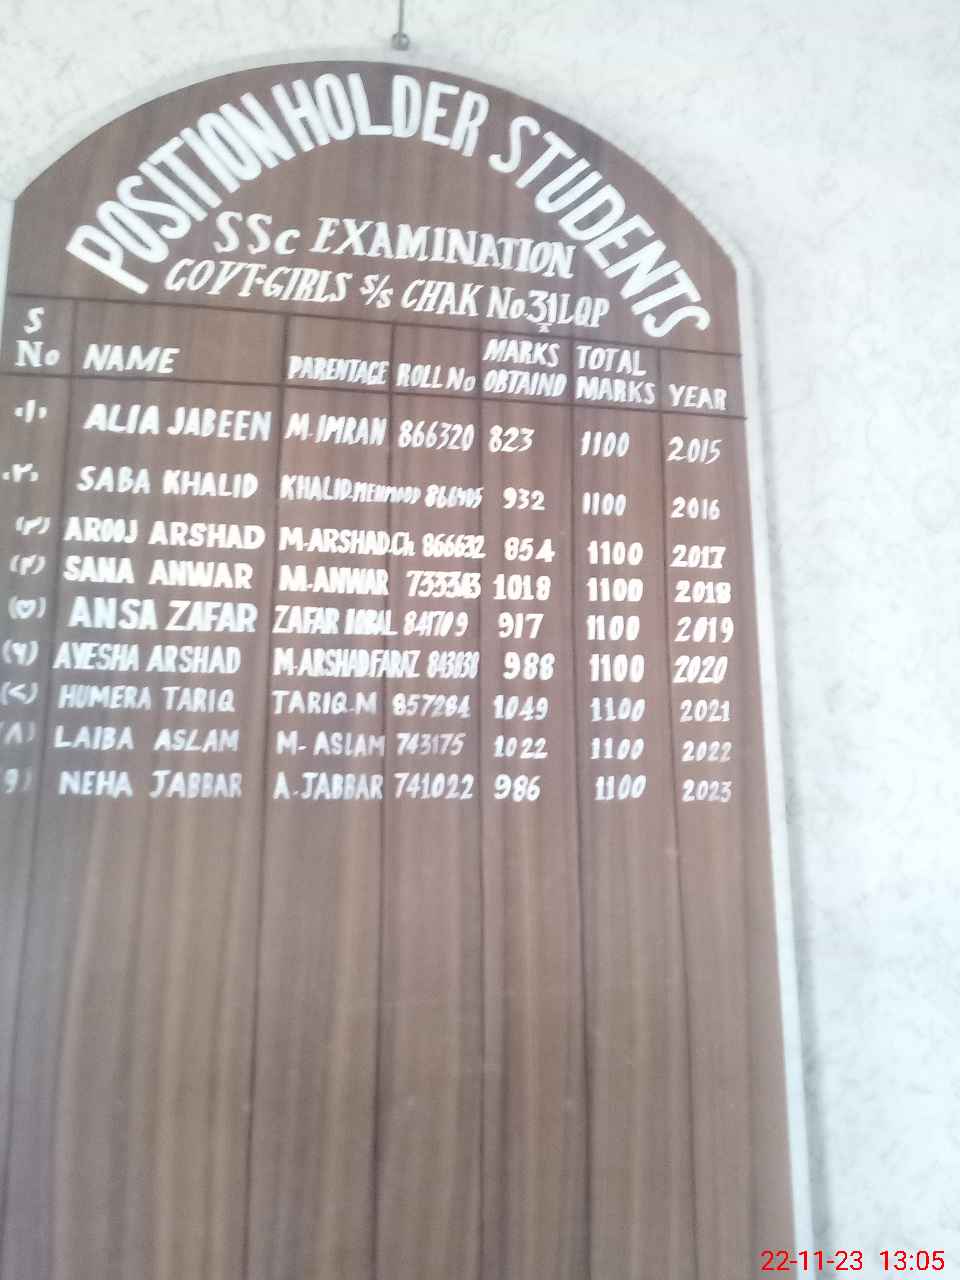 POSITION HOLDER STUDENTS
SSc EXAMINATION
GOVT-GIRLS S/S CHAK No.31LQP
S No NAME PARENTAGE ROLL No MARKS OBTAIND TOTAL MARKS YEAR
(۱) ALIA JABEEN M.IMRAN 866320 823 1100 2015
(۲) SABA KHALID KHALID.MEHMOOD 1100 932 2016
(۳) AROOJ ARSHAD M.ARSHAD.Ch 866632 854 1100 2017
(۴) SANA ANWAR M.ANWAR 733343 1018 1100 2018
(۵) ANSA ZAFAR ZAFAR IQBAL 841709 917 1100 2019
(۶) AYESHA ARSHAD M.ARSHAD FARAZ 988 1100 2020
(۷) HUMERA TARIQ TARIQ.M 857284 1049 1100 2021
(۸) LAIBA ASLAM M-ASLAM 743175 1022 1100 2022
(۹) NEHA JABBAR A.JABBAR 741022 986 1100 2023
22-11-23 13:05